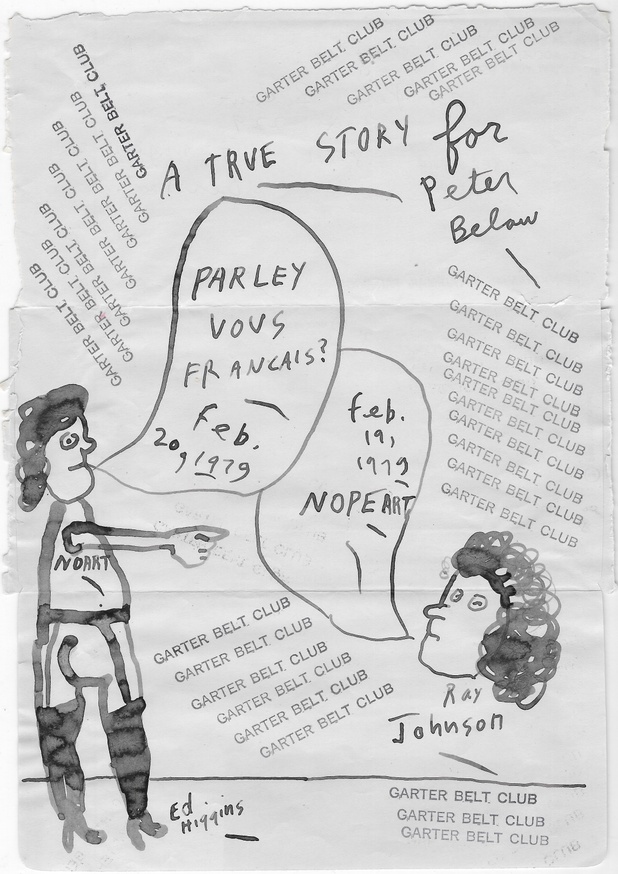 GARTER BELT. CLUB
GARTER BELT. CLUB
GARTER BELT CLUB
GARTER BELT CLUB
GARTER BELT CLUB
GARTER BELT. CLUB
GARTER BELT. CLUB
GARTER BELT. CLUB
GARTER BELT. CLUB
GARTER BELT. CLUB
GARTER BELT. CLUB
A TRVE STORY for
Peter
Below
PARLEY
VOVS
FRANCAIS?
Feb.
20, 1979
feb.
19,
1979
NOPEART
GARTER BELT CLUB
GARTER BELT CLUB
GARTER BELT CLUB
GARTER BELT CLUB
GARTER BELT CLUB
GARTER BELT CLUB
GARTER BELT CLUB
GARTER BELT CLUB
GARTER BELT CLUB
GARTER BELT CLUB
NOART
GARTER BELT. CLUB
GARTER BELT. CLUB
GARTER BELT. CLUB
GARTER BELT. CLUB
GARTER BELT. CLUB
GARTER BELT CLUB
Ray
Johnson
Ed
Higgins
GARTER BELT. CLUB
GARTER BELT. CLUB
GARTER BELT. CLUB